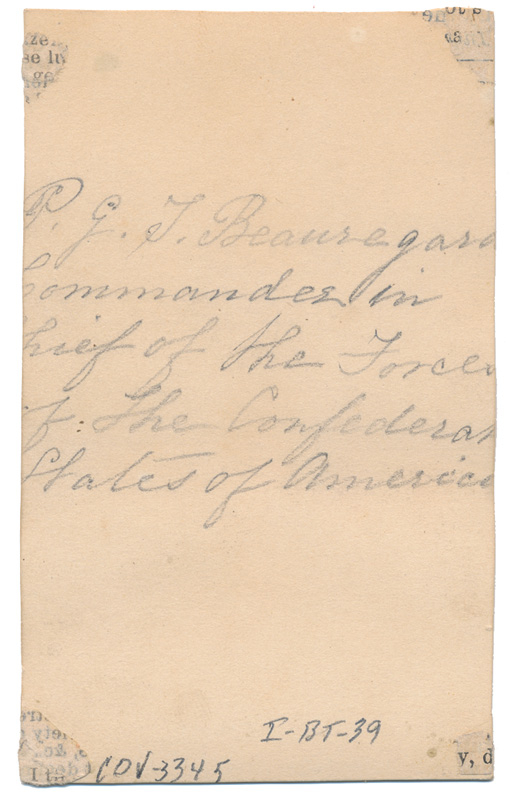 P. G. T. Beauregard
Commander in
hief of the Forces
f the Confederat
States of America
I-BT-39
CDV-3345
v, d